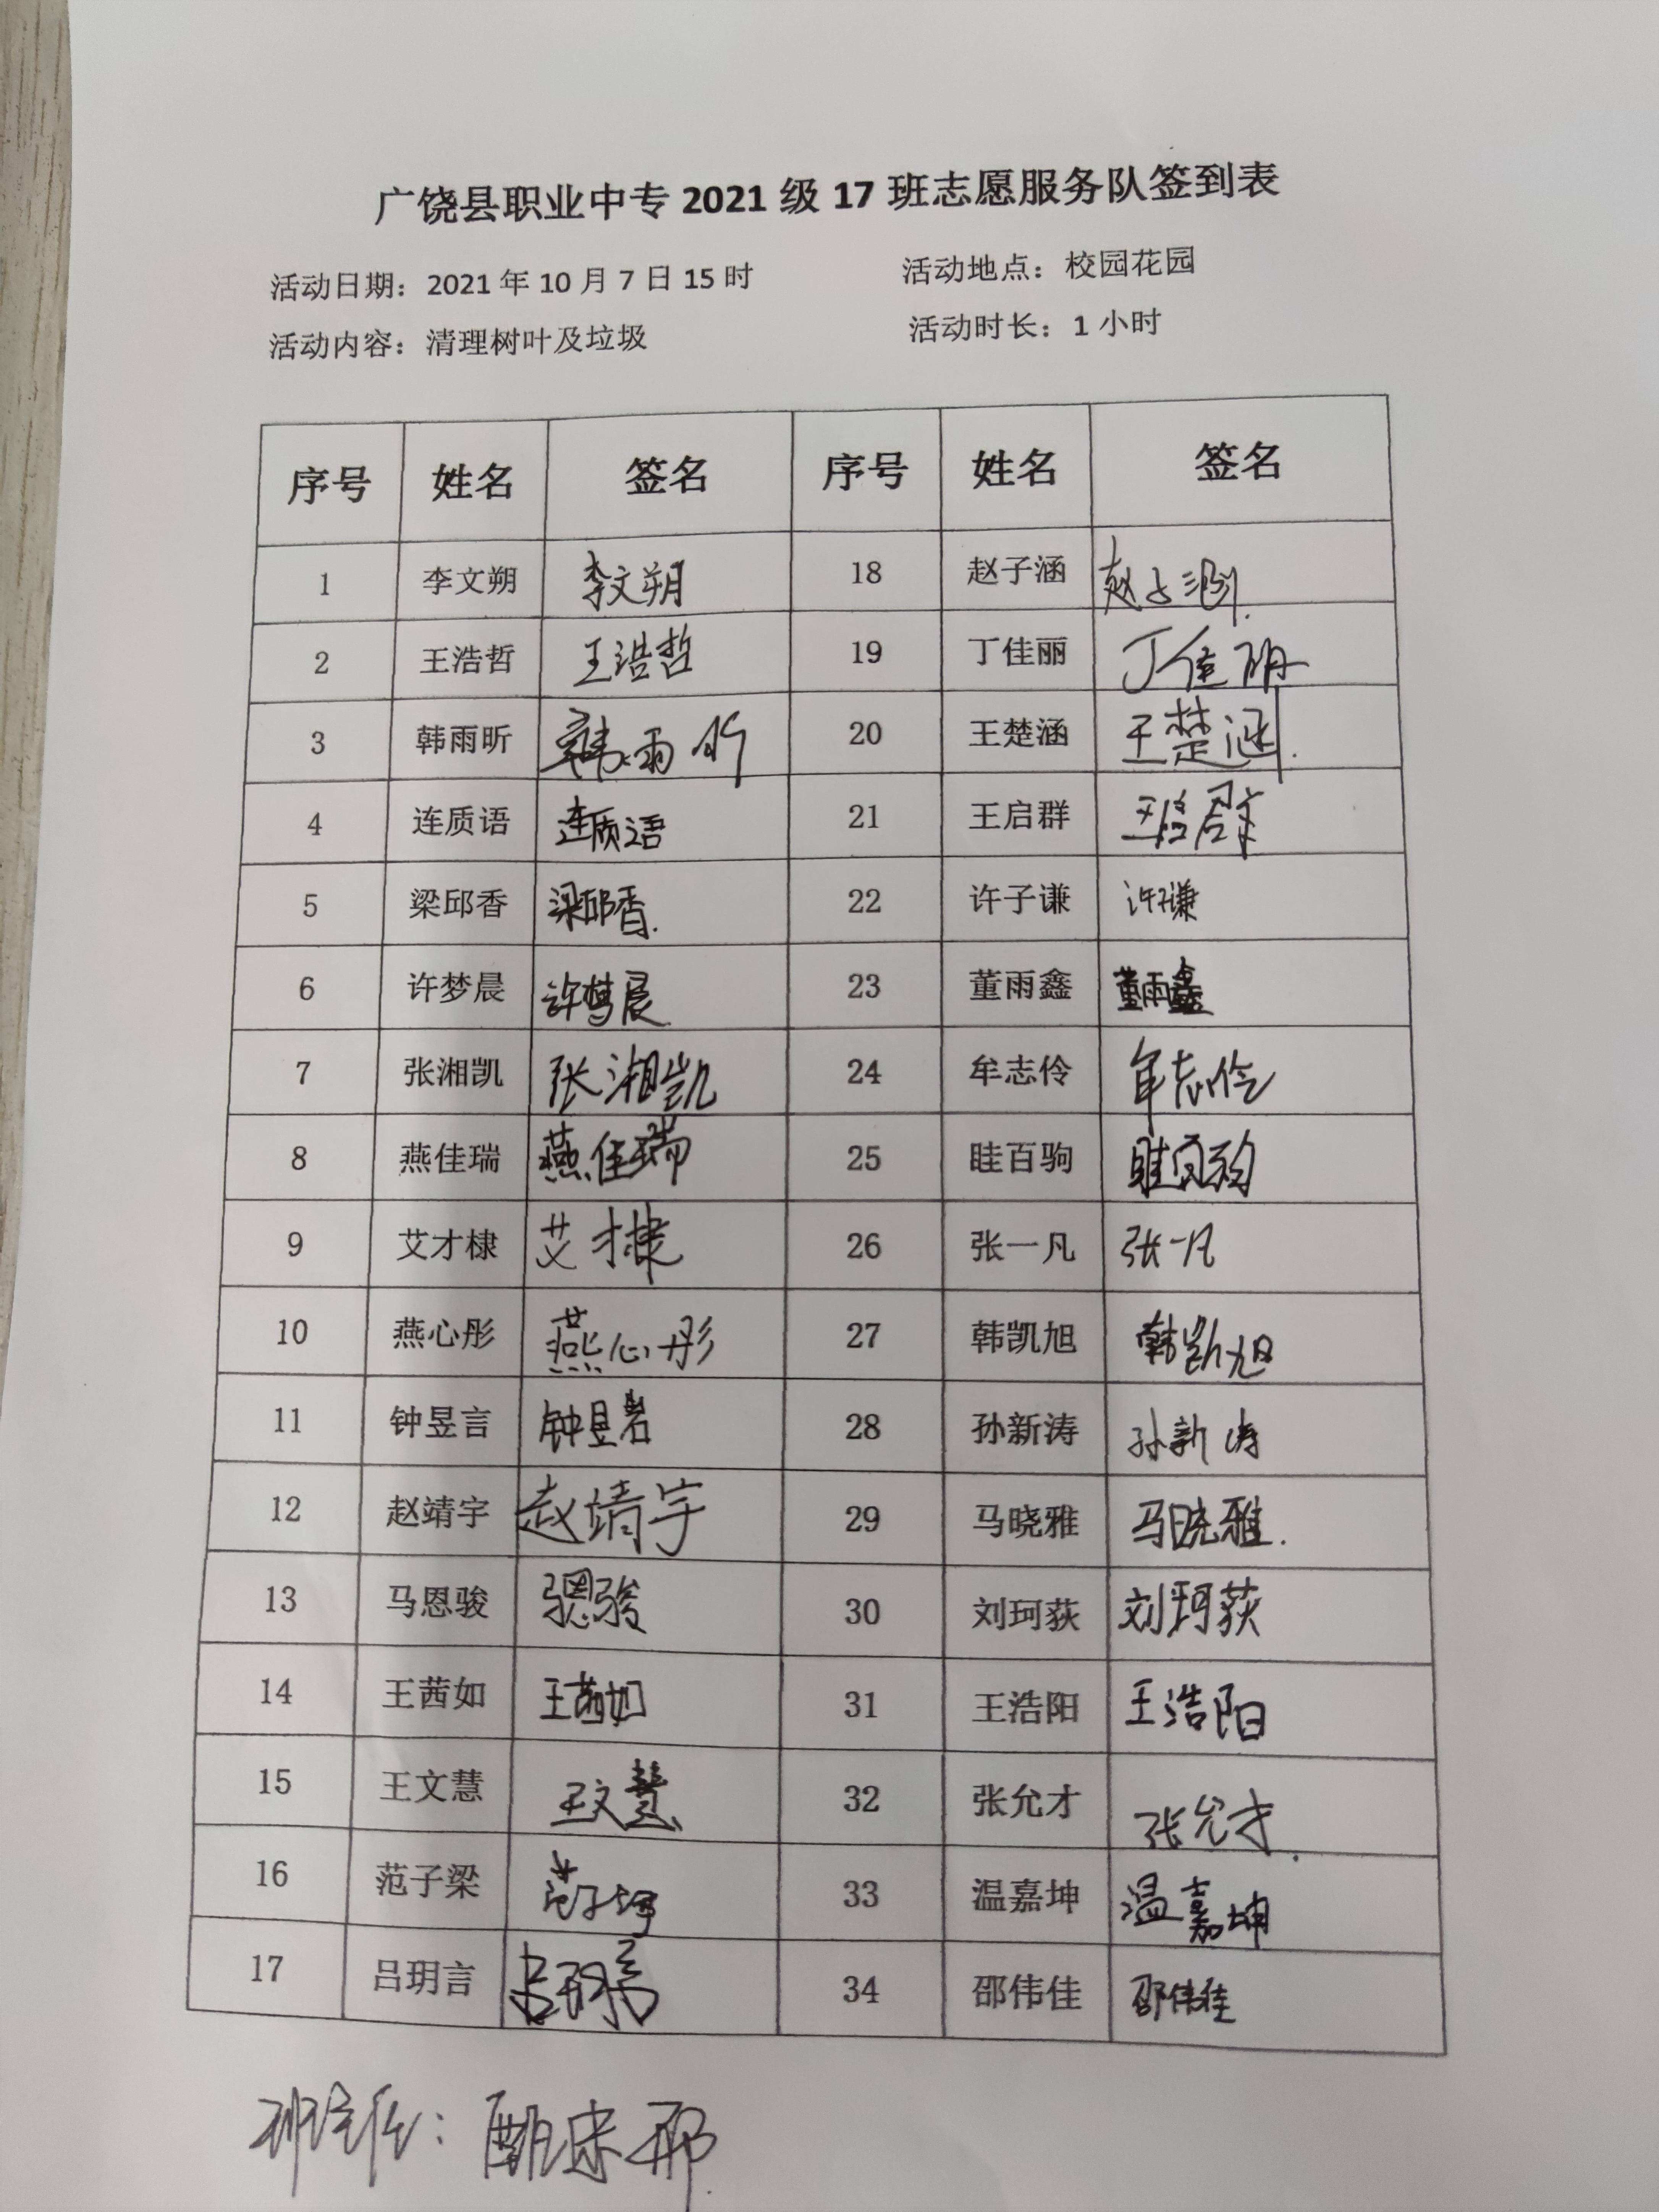 广饶县职业中专 2021 级 17 班志愿服务队签到表
活动日期：2021 年 10 月 7 日 15 时 活动地点：校园花园
活动内容：清理树叶及垃圾 活动时长：1 小时
序号 姓名 签名 序号 姓名 签名
1 李文朔 李文朔 18 赵子涵 赵子涵
2 王浩哲 王浩哲 19 丁佳丽 丁佳丽
3 韩雨昕 韩雨昕 20 王楚涵 王楚涵
4 连质语 连质语 21 王启群 王启群
5 梁邱香 梁邱香 22 许子谦 许子谦
6 许梦晨 许梦晨 23 董雨鑫 董雨鑫
7 张湘凯 张湘凯 24 牟志伶 牟志伶
8 燕佳瑞 燕佳瑞 25 眭百驹 眭百驹
9 艾才棣 艾才棣 26 张一凡 张一凡
10 燕心彤 燕心彤 27 韩凯旭 韩凯旭
11 钟昱言 钟昱君 28 孙新涛 孙新涛
12 赵靖宇 赵靖宇 29 马晓雅 马晓雅.
13 马恩骏 马恩骏 30 刘珂荻 刘珂荻
14 王茜如 王茜如 31 王浩阳 王浩阳
15 王文慧 王文慧 32 张允才 张允才
16 范子梁 33 温嘉坤 温嘉坤
17 吕玥言 吕玥言 34 邵伟佳 邵伟佳
班主任：